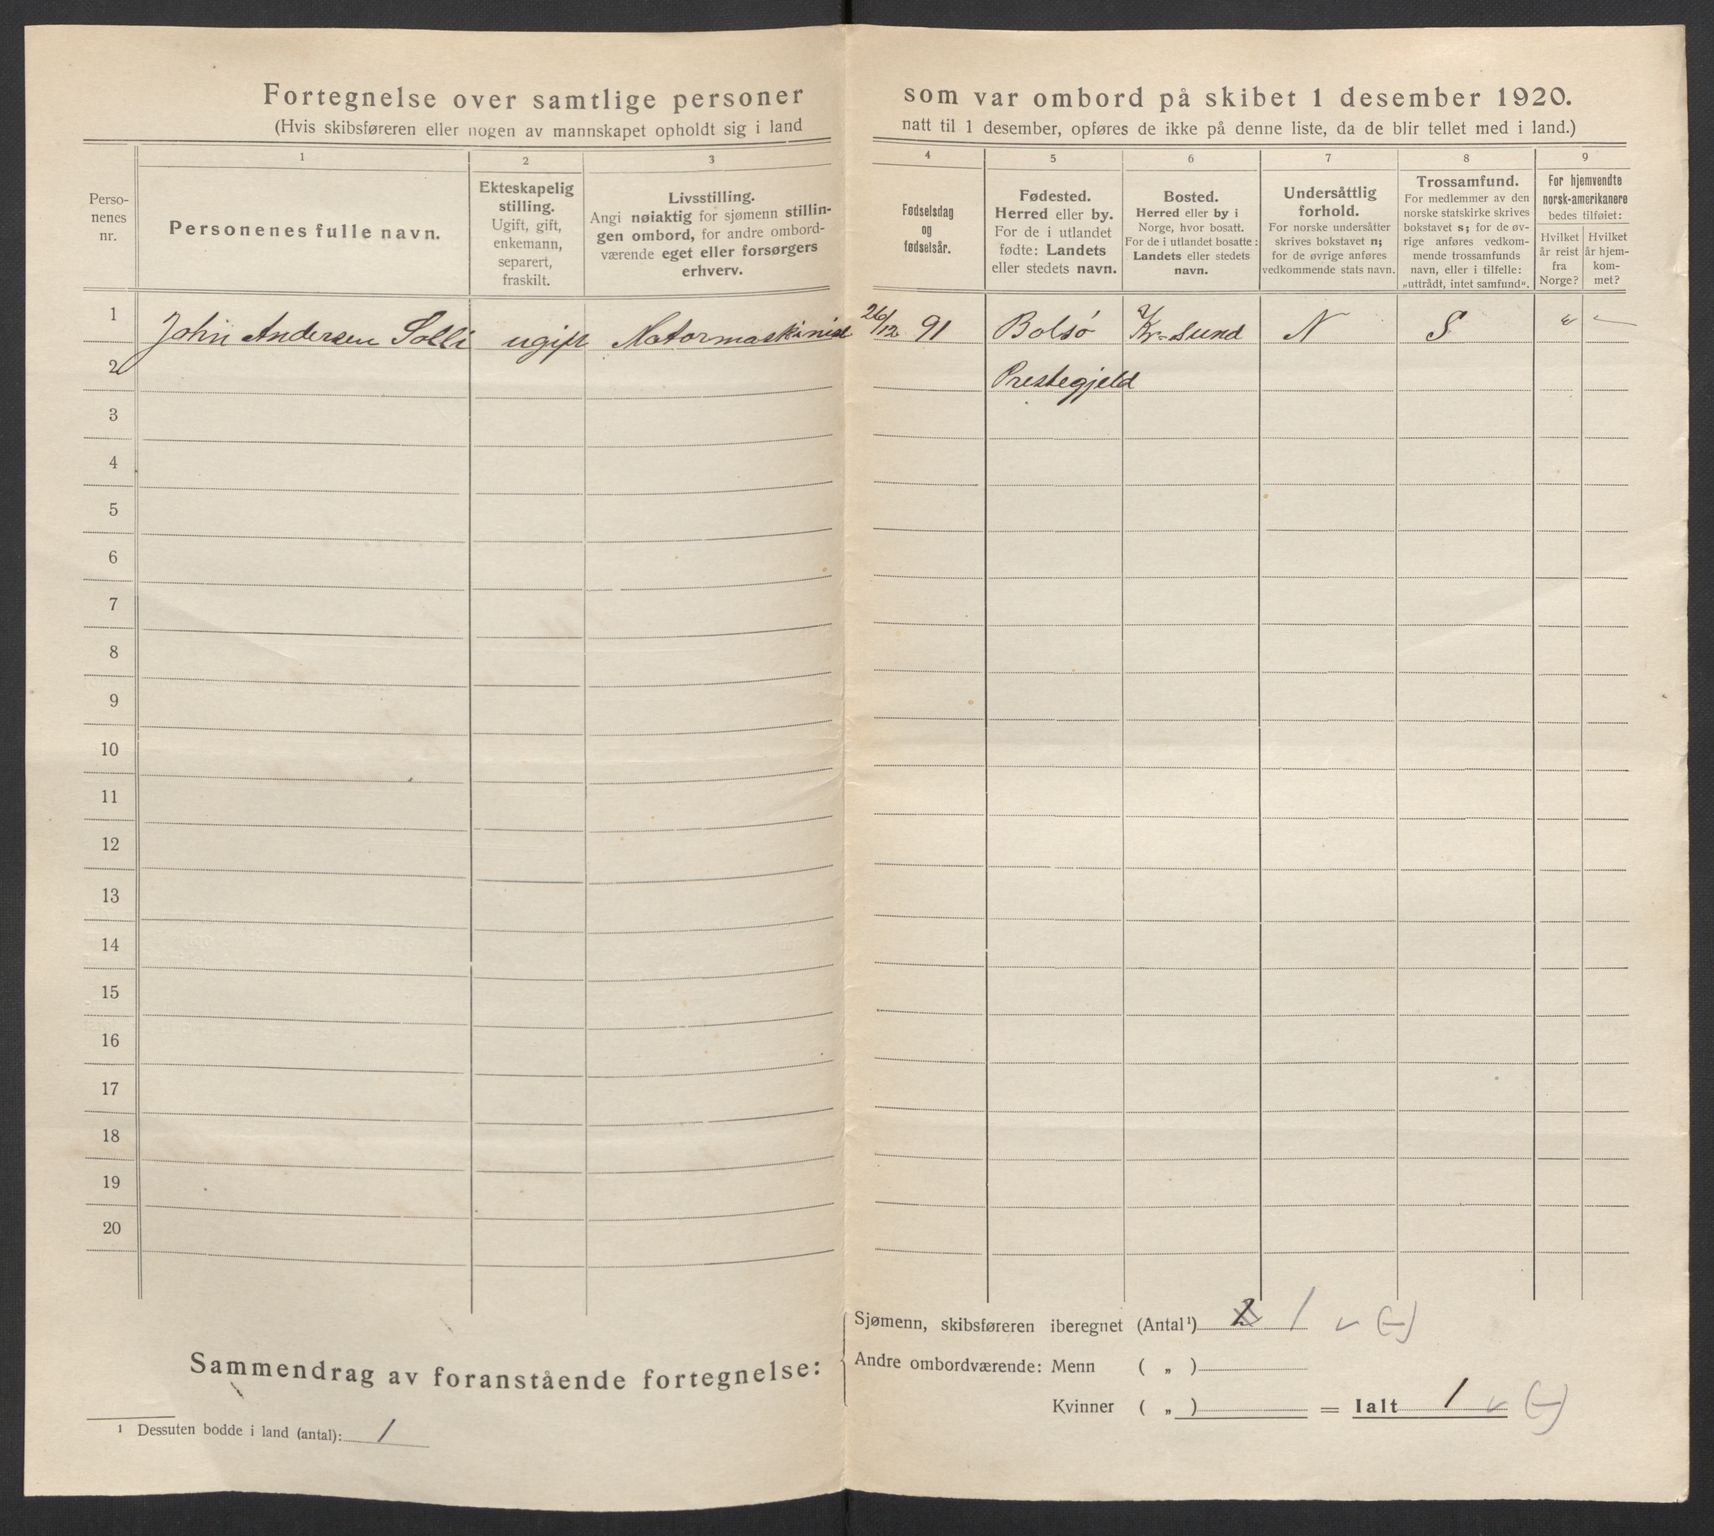 Fortegnelse over samtlige personer som var ombord på skibet 1 desember 1920.
(Hvis skibsføreren eller nogen av mannskapet opholdt sig i land natt til 1 desember, opføres de ikke på denne liste, da de blir tellet med i land.)
Perso-
nenes
nr.
1
Personenes fulle navn.
2
Ekteskapelig
stilling.
Ugift, gift,
enkemann,
separert,
fraskilt.
3
Livsstilling.
Angi nøiaktig for sjømenn stillin-
gen ombord, for andre ombord-
værende eget eller forsørgers
erhverv.
4
Fødselsdag
og
fødselsår.
5
Fødested.
Herred eller by.
For de i utlandet
fødte: Landets
eller stedets navn.
6
Bosted.
Herred eller by i
Norge, hvor bosatt.
For de i utlandet bosatte:
Landets eller stedets
navn.
7
Undersåttlig
forhold.
For norske undersåtter
skrives bokstavet n;
for de øvrige anføres
vedkommende stats navn.
8
Trossamfund.
For medlemmer av den
norske statskirke skrives
bokstavet s; for de øv-
rige anføres vedkom-
mende trossamfunds
navn, eller i tilfelle:
„uttrådt, intet samfund".
9
For hjemvendte
norsk-amerikanere
bedes tilføiet:
Hvilket
år reist
fra
Norge?
Hvilket
år hjem-
kom-
met?
1 John Andersen Solli ugift Motormaskinist 26/12 91 Bolsø Kr-Sund N S " -
2 Prestegjeld
3
4
5
6
7
8
9
10
11
12
13
14
15
16
17
18
19
20
Sammendrag av foranstående fortegnelse:
Sjømenn, skibsføreren iberegnet (Antal¹) 2 1 v (-)
Andre ombordværende: Menn ( „ )
Kvinner ( „ ) = Ialt 1 v (-)
¹ Dessuten bodde i land (antal): 1